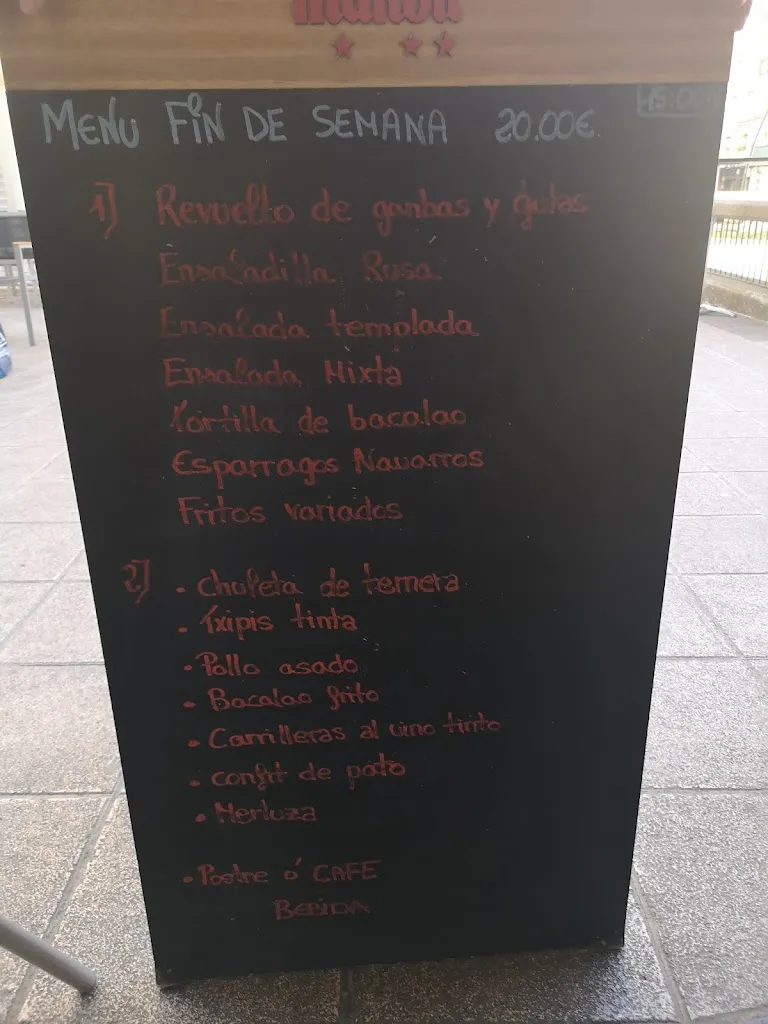 MENU FIN DE SEMANA 20.00€
1] Revuelto de gambas y gulas
Ensaladilla Rusa
Ensalada templada
Ensalada Mixta
Tortilla de bacalao
Esparragos Navarros
Fritos variados
2] • Chuleta de ternera
• Txipis tinta
• Pollo asado
• Bacalao frito
• Carrilleras al vino tinto
• confit de pato
• Merluza
• Postre ó CAFE
BEBIDA